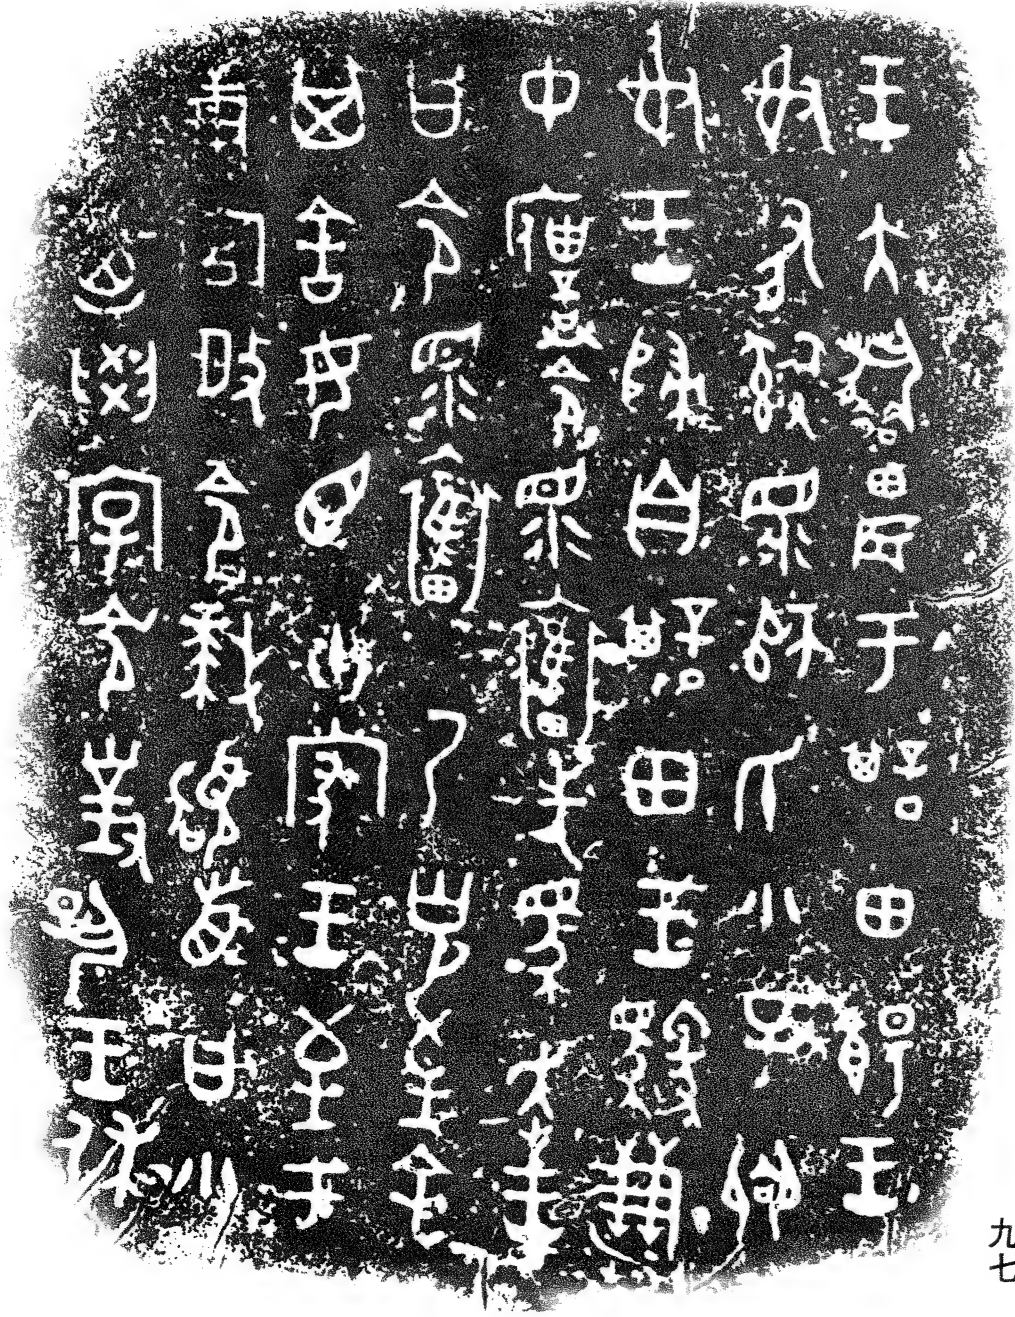 王大耤農于諆田餳王
射有𤔲眔師氏小子𨚕
射王歸自諆田王馭溓
中僕令眔奮先馬走王
曰令眔奮乃克至余
其舍女臣卅家王至于
溓宮𢼄令拜稽首曰小
子廼學令對揚王休
九七